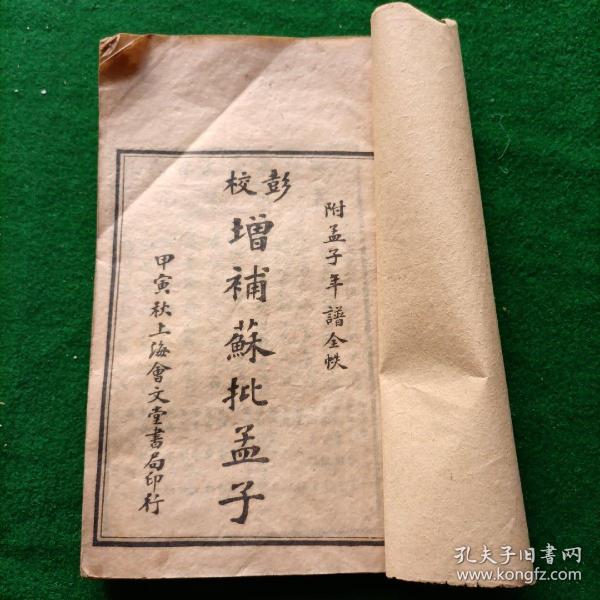 附孟子年譜全帙
彭校
增補蘇批孟子
甲寅秋上海會文堂書局印行
孔夫子旧书网
www.kongfz.com